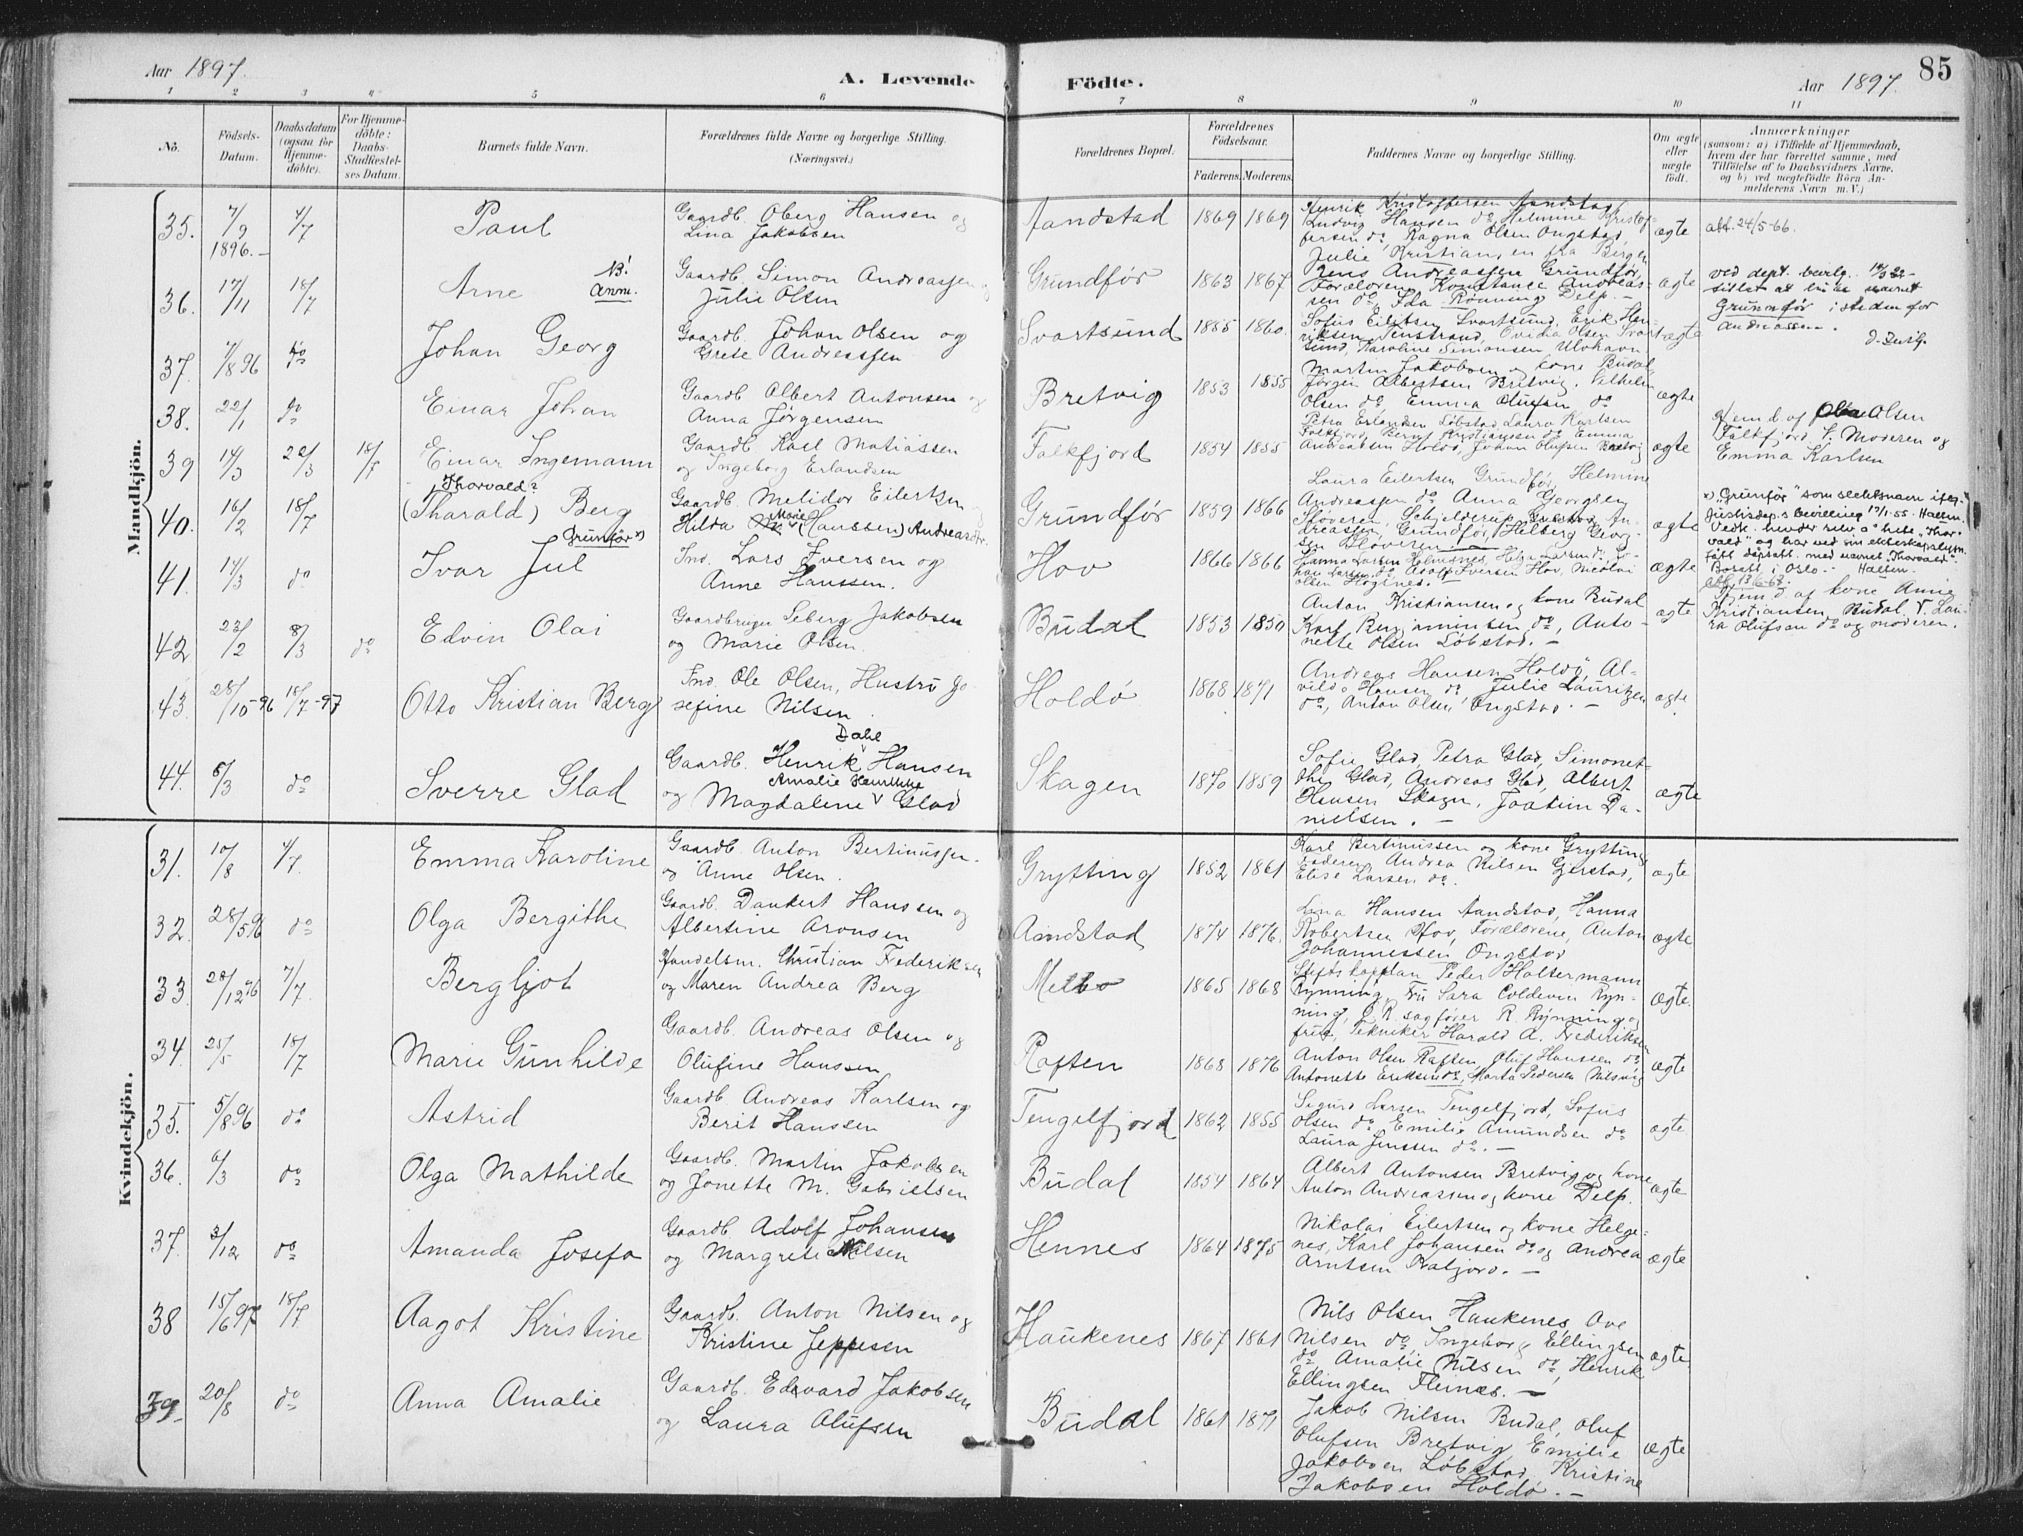 Aar 1897.
A. Levende Födte.
Aar 1897.
85
1 2 3 4 5 6 7 8 9 10 11
No.
Födsels-Datum.
Daabsdatum (ogsaa for Hjemmedöbte).
For Hjemmedöbte: Daabs-Stadfæstelses Datum.
Barnets fulde Navn.
Forældrenes fulde Navne og borgerlige Stilling. (Næringsvei.)
Forældrenes Bopæl.
Forældrenes Födselsaar.
Faderens. Moderens.
Faddernes Navne og borgerlige Stilling.
Om ægte eller uægte födt.
Anmærkninger
(saasom: a) i Tilfælde af Hjemmedaab,
hvem der har forrettet samme, med
Tilföielse af to Daabsvidners Navne,
og b) ved uægtefödte Börn An-
melderens Navn m. V.)
Mandkjön.
35. 7/9 1896.- 4/7 Paul
Gaardb. Oberg Hansen og
Lina Jakobsen
Aandstad 1869 1869
Henrik Kristoffersen Aandstad,
Ludvig Hansen do, Helmine Kristof-
fersen do, Ragna Olsen Ongstad,
Julie Kristiansen fra Bergen
ægte
att. 24/5-66.
36. 17/11 18/7 Arne NB! anm.
Gaardb. Simon Andreassen og
Julie Olsen
Grundför 1863 1867
Rens Andreassen Grundför,
Forældrene, Konstance Andreas-
sen do, Ida Rönning Delp. -
ægte
ved dept. bevilg.
Grunnför isteden for
Andreassen.
37. 7/8 96 do Johan Georg
Gaardb. Johan Olsen og
Grete Andreassen
Svartsund 1855 1860.
Sofus Eilertsen Svartsund, Erik Hen-
riksen Tenstrand, Ovidia Olsen Svart-
sund, Karoline Simonsen Ulvhavn
ægte
38. 22/1 do Einar Johan
Gaardb. Albert Antonsen og
Anna Jörgensen
Bretvig 1853 1855
Martin Jakobsen og kone Budal,
Jörgen Albertsen Bretvig, Vilhelm
Olsen do, Emma Olufsen do
ægte
39 14/3 22/3 18/7 Einar Ingemann
Gaardb. Karl Matiassen
og Ingeborg Erlandsen
Falkfjord 1854 1855
Petra Erlandsen Löbstad, Laura Karlsen
Falkfjord, Bernt Kristiansen do, Emma
Andreassen Holdö, Johan Olufsen Bretvig
ægte
Hjemd. af Olsen
Falkfjord. V. Moderen og
Emma Karlsen
40. 16/2 18/7 Thorvald?
(Tharald) Berg
Grunför x)
Gaardb. Melidor Eilertsen
Hilda Marie (Hanssen) Andreasdtr.
Grundför 1859 1866
Laura Eilertsen Grundför, Helmine
Andreassen do, Anna Georgsen
Slöveren, Schjelderup An-
dreassen, Grundför, Helberg Georg-
sen Slöveren
ægte
x) "Grunför" som slektsnavn iflg.
Justisdep.s bevilling 17/1-55. Haltm.
"Thor-
vald" og har ved sin ekteskapslysn.
Bosatt i Oslo - Haltm
att. 13/6-67.
41. 14/3 do Ivar Jul
Ind. Lars Iversen og
Anne Hanssen.
Hov 1866 1866
Hanna Larsen Helgenes, Helga Larsen do, Jo-
han Larsen do, Adolf Iversen Hov, Nicolai
Olsen Högtnes.
ægte
42 23/2 8/3 do Edvin Olai
Gaardbruger Seberg Jakobsen
og Marie Olsen.
Budal 1853 1850
Anton Kristiansen og kone Budal
Karl Benjaminsen do, Anto-
nette Olsen Löbstad. -
ægte
Hjemd. af kone Anne
Kristiansen, Budal V. Lau-
ra Olufsen do og moderen.
43. 28/10-96 18/7-97 Otto Kristian Berg
Ind. Ole Olsen, Hustru Jo-
sefine Nilsen.
Holdö 1868 1871
Andreas Hansen Holdö, Al-
vilda Hansen do, Julie Lauritzen
do, Anton Olsen Ongstad. -
ægte
44. 6/3 do Sverre Glad
Dahl
Gaardb. Henrik Hansen
Amalie Henrikke
og Magdalene Glad
Skagen 1870 1859
Sofie Glad, Petra Glad, Simonet-
the Glad, Andreas Glad, Albert
Hansen Skagen, Joakim Da-
nielsen. -
ægte
Kvindekjön.
31. 10/8 4/7. Emma Karoline
Gaardb. Anton Bertinussen.
og Anne Olsen.
Grytting 1852 1861
Karl Bertinussen og kone Grytting
Faderen, Andrea Nilsen Gjerstad,
Elise Larsen do.
ægte
32. 28/5 96 do Olga Bergithe
Gaardb. Dankert Hanssen og
Albertine Aronsen
Aandstad 1874 1876.
Lina Hansen Aandstad, Hanna
Robertsen Hov, Forældrene, Anton
Johannessen Ongstad
ægte
33. 28/12 96 7/7. Bergljot
Handelsm. Christian Frederiksen
og Maren Andrea Berg
Melbo 1865 1868
Stiftskapplan Peder Holtermann
Rynning, Fru Sara Coldevin Ryn-
ning, O.R. sagförer R. Rynning og
frue, Tekniker Harald A. Frederiksen
ægte.
34. 25/5 18/7 Marie Gunhilde
Gaardb. Andreas Olsen og
Olufine Hanssen
Raften 1868 1876
Anton Olsen Raften, Oluf Hanssen do,
Antonette Eriksen do, Marta Pedersen Nilsvig
ægte
35. 5/8 96 do Astrid
Gaardb. Andreas Karlsen og
Berit Hanssen
Tengelfjord 1862 1855
Sigurd Larsen Tengelfjord, Sofus
Olsen do, Emilie Amundsen do
Laura Jenssen do. -
ægte
36. 6/3 do Olga Mathilde
Gaardb. Martin Jakobsen
og Jonette M. Gabrielsen
Budal 1854 1864
Albert Antonsen Bretvig og kone
Anton Andreassen og kone Delp.
ægte
37. 3/12 do Amanda Josefa
Gaardb. Adolf Johansen
og Margrete Nilsen
Hennes 1864 1875
Nikolai Eilertsen og kone Helge-
nes, Karl Johansen do og Andrea
Arntsen Kaljord. -
ægte
38 15/6 97 18/7 Aagot Kristine
Gaardb. Anton Nilsen og
Kristine Jeppesen
Haukenes 1867 1861
Nils Olsen Haukenes, Ove
Nilsen do, Ingeborg Ellingsen
do, Amalie Nilsen do, Henrik
Ellingsen Fleines. -
ægte
39. 20/8 do Anna Amalie
Gaardb. Edevard Jakobsen
og Laura Olufsen
Budal 1861 1871
Jakob Nilsen Budal, Oluf
Olufsen Bretvig, Emilie
Jakobsen Löbstad, Kristine
Jakobsen Holdö. -
ægte